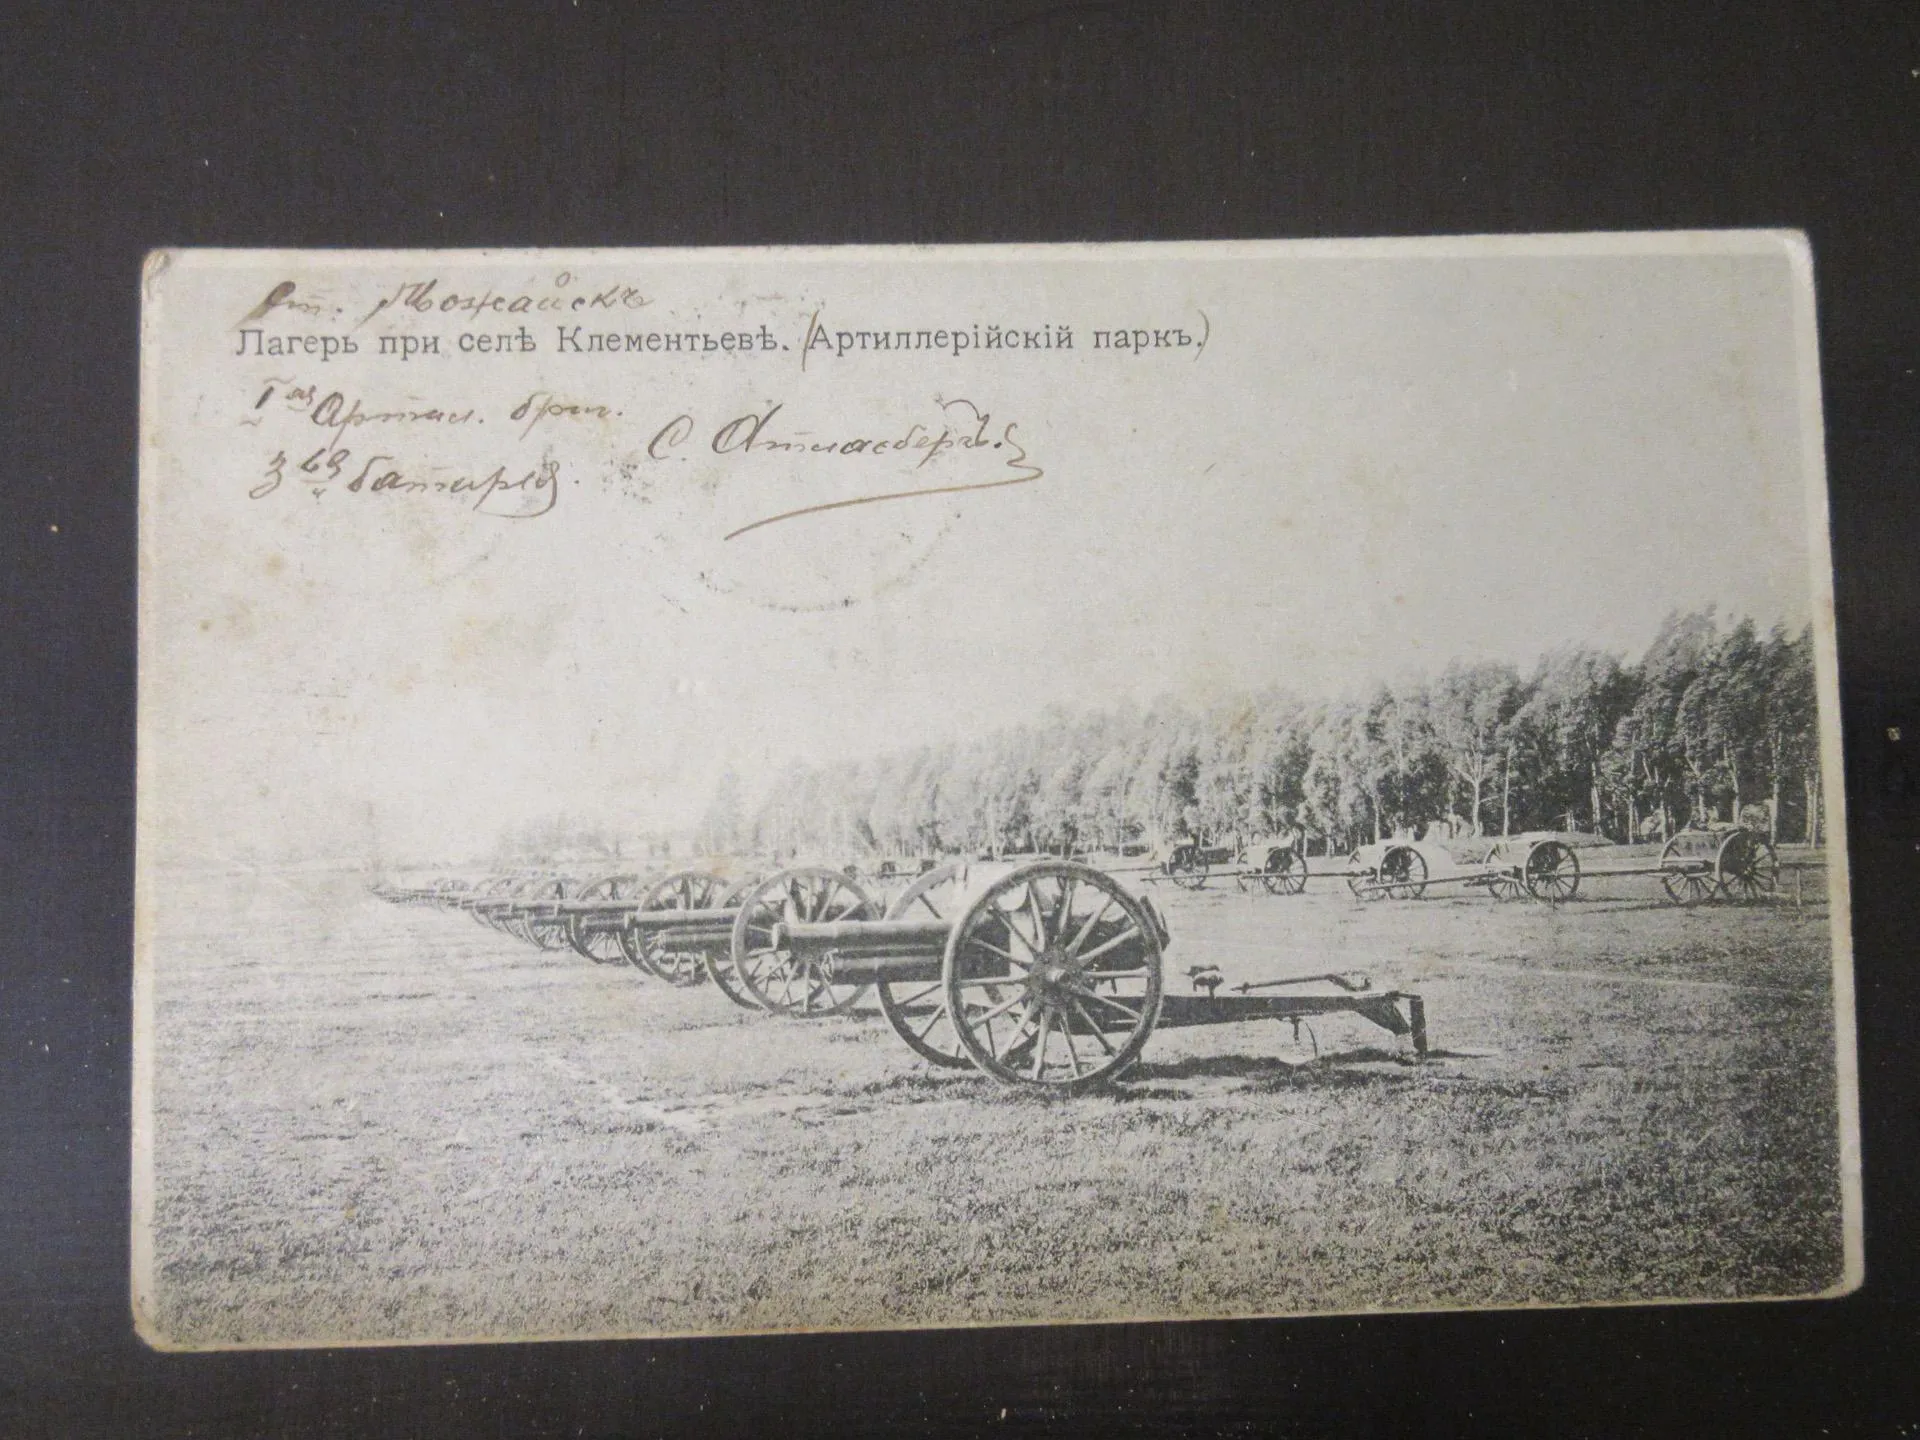 Ст. Можайскъ
Лагерь при селѣ Клементьевѣ. (Артиллерійскій паркъ.)
1ая Артил. бриг.
С. Атласбергъ.
3ья батарея.